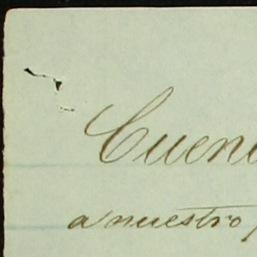 Cuen
a nuestro